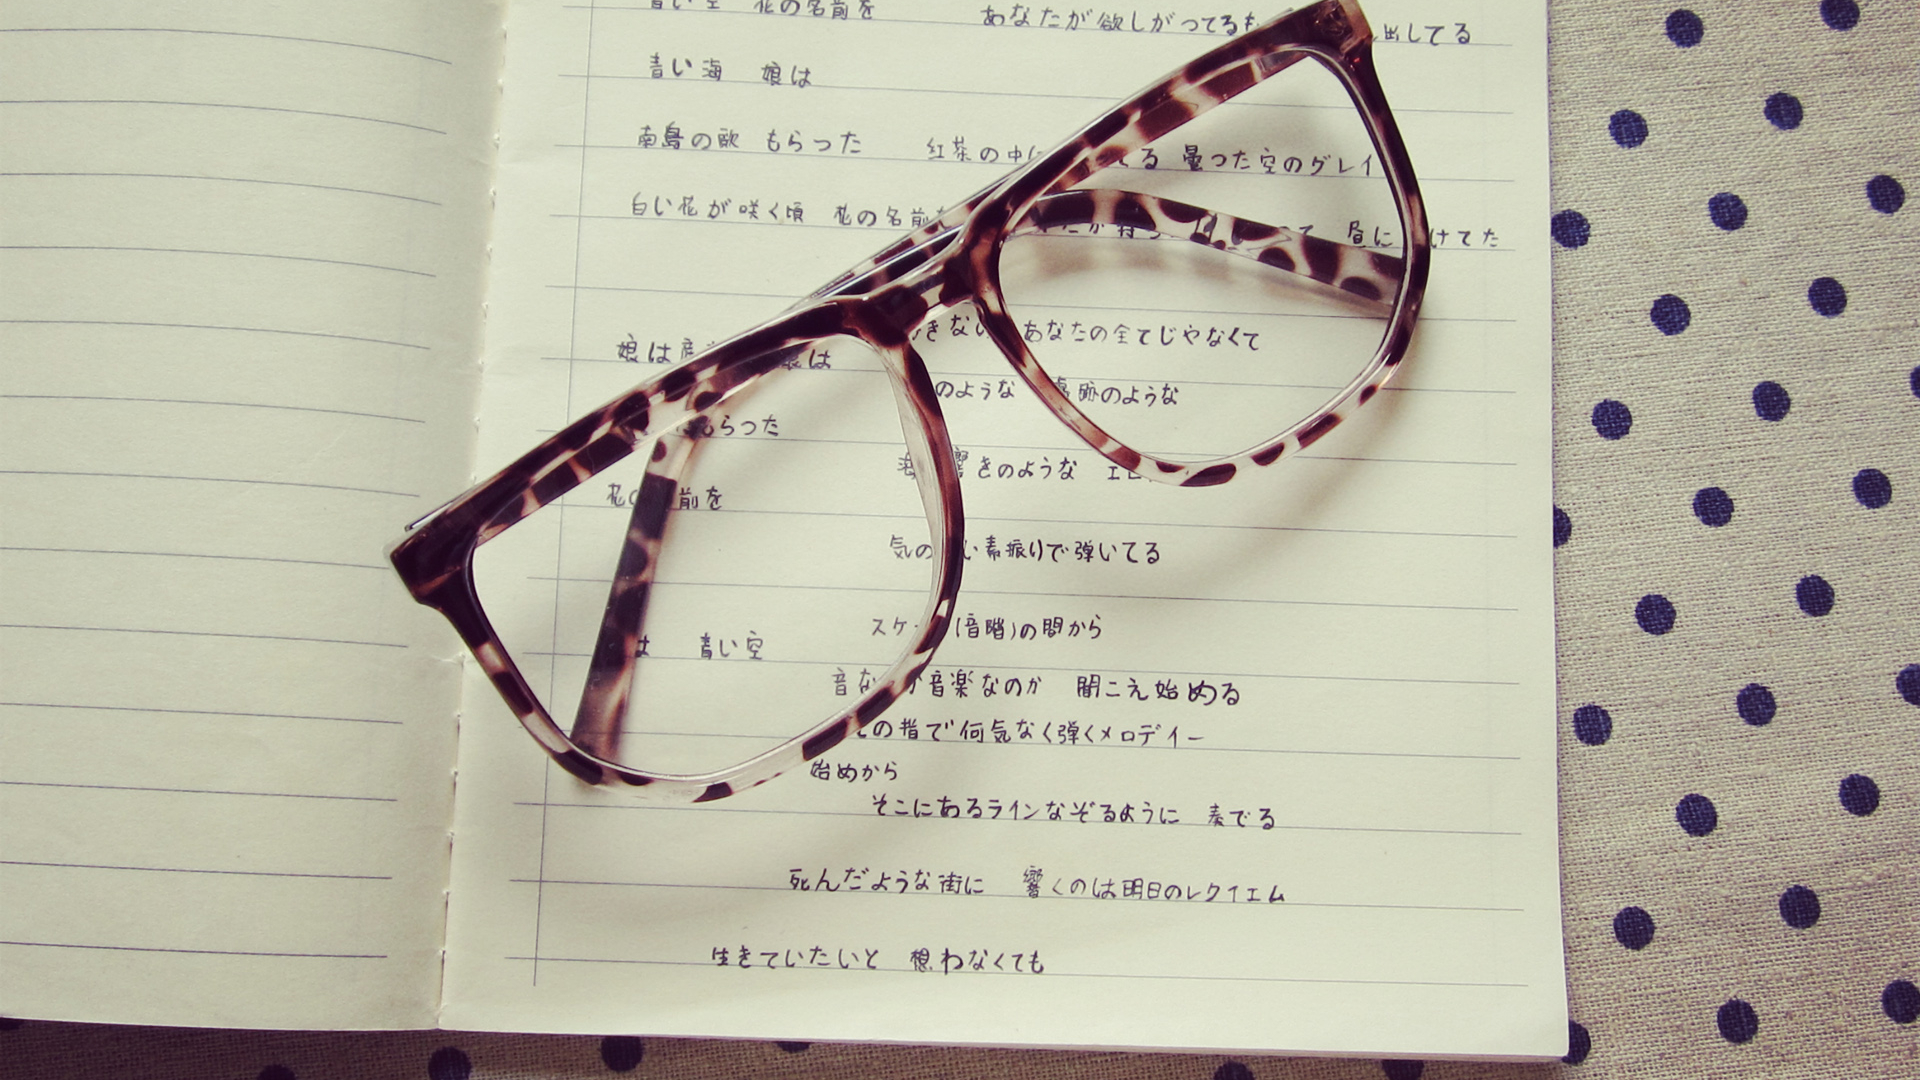 青い空 花の名前を あなたが欲しがってるも 出してる
青い海 娘は
南島の歌 もらった 紅茶の中に てる 曇った空のグレイ
白い花が咲く頃 花の名前を 昼に けてた
きない あなたの全てじゃなくて
娘は 娘は
のような 跡のような
もらった
海 響きのような
花の 前を
気の い素振りで弾いてる
スケ (音階)の間から
は 青い空
音な か音楽なのか 聞こえ始める
の指で何気なく弾くメロディー
始めから
そこにあるラインなぞるように 奏でる
死んだような街に 響くのは明日のレクイエム
生きていたいと 想わなくても